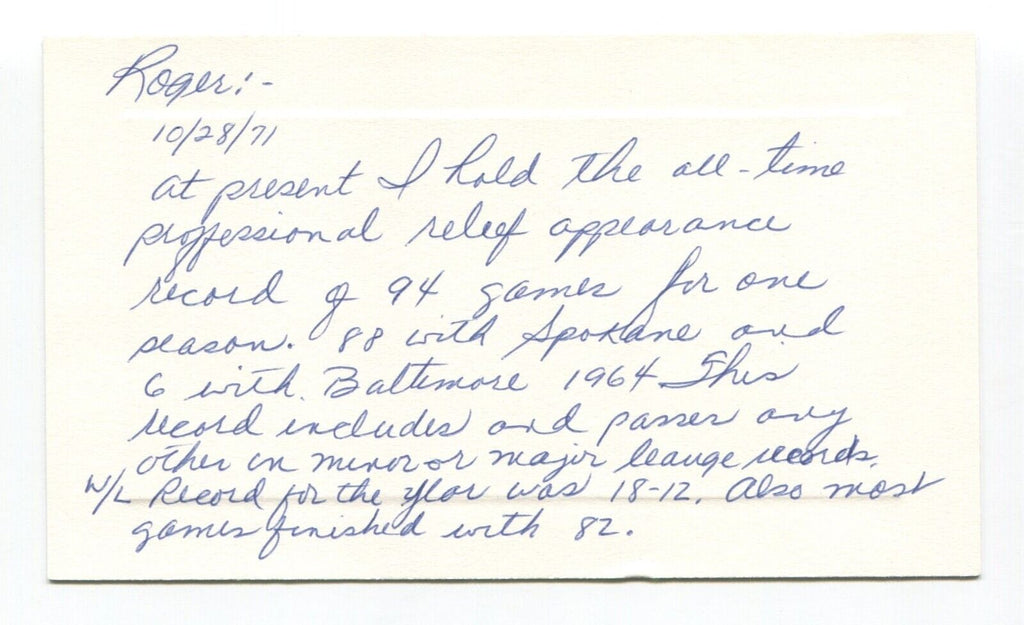 Roger:-
10/28/71
at present I hold the all-time
proffessional releef appearance
record of 94 games for one
season. 88 with Spokane and
6 with Baltimore 1964 This
record includes and passes any
other in minor or major leauge records.
W/L Record for the year was 18-12. Also most
games finished with 82.